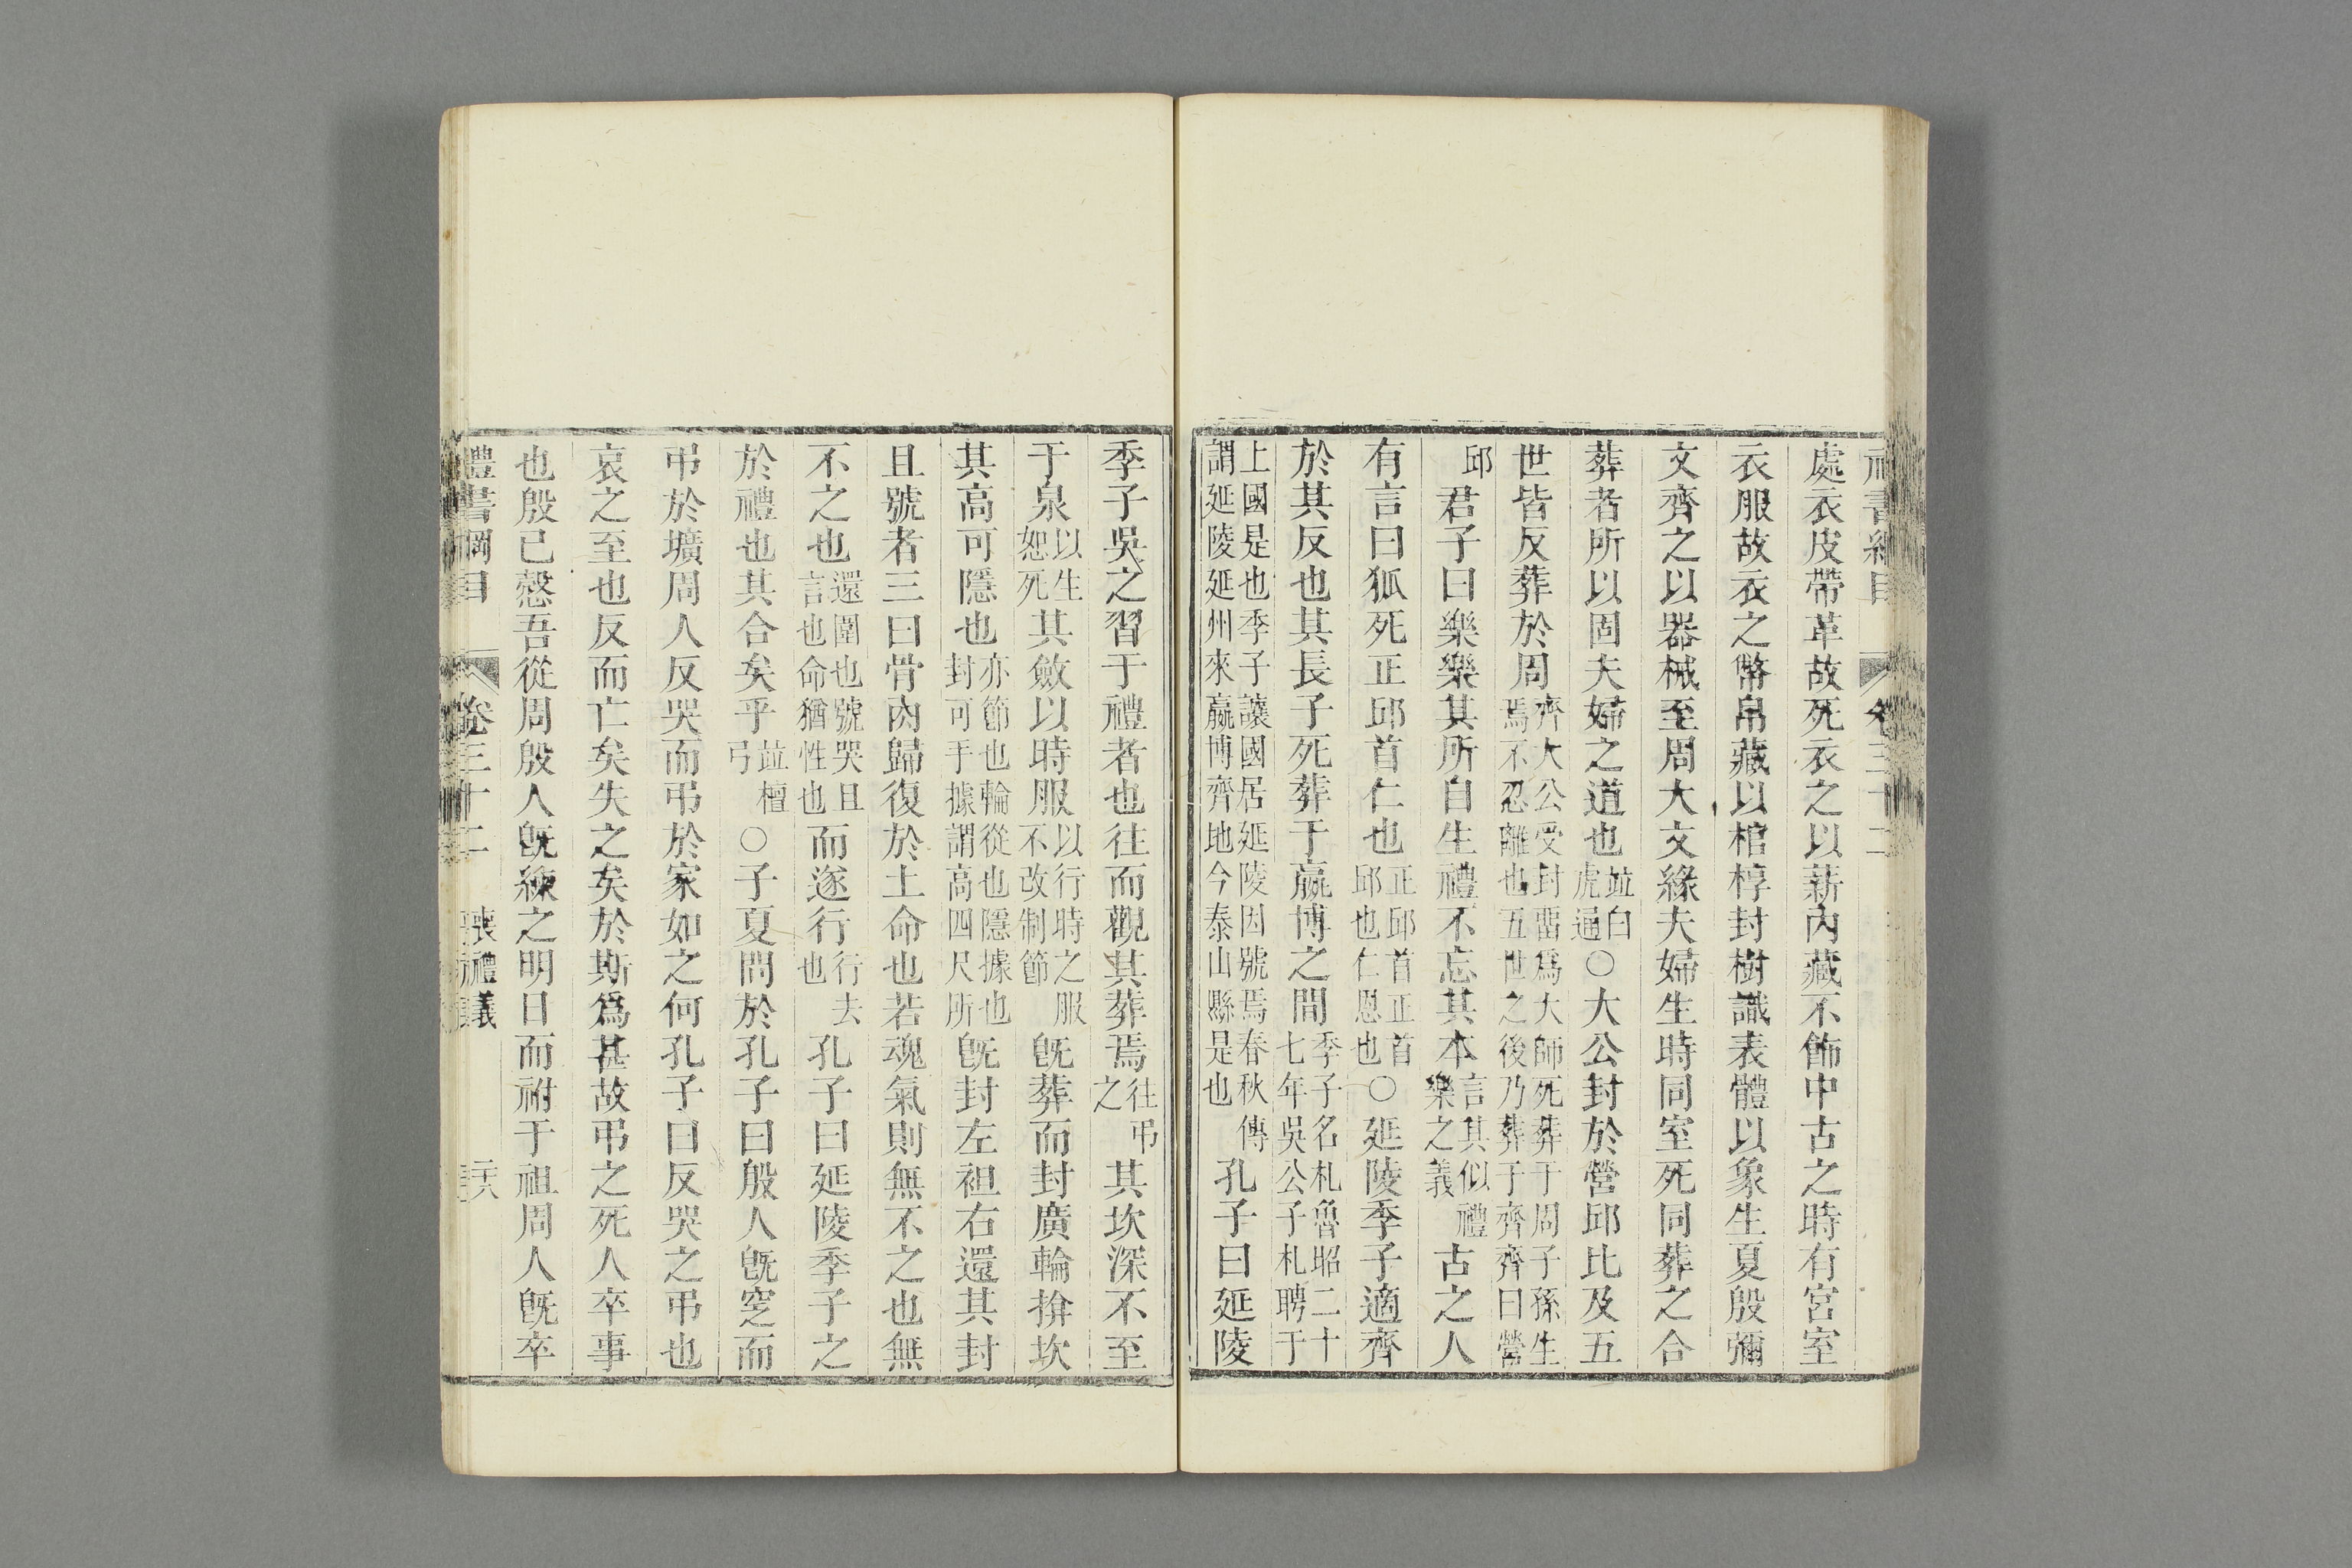 處衣皮帶革故死衣之以薪內藏不飾中古之時有宮室
衣服故衣之幣帛藏以棺椁封樹識表體以象生夏殷彌
文齊之以器械至周大文緣夫婦生時同室死同葬之合
葬者所以固夫婦之道也竝白虎通○大公封於營邱比及五
世皆反葬於周齊大公受封畱爲大師死葬于周子孫生焉不忍離也五世之後乃葬于齊齊曰營
邱君子曰樂樂其所自生禮不忘其本言其似禮樂之義古之人
有言曰狐死正邱首仁也正邱首正首邱也仁恩也○延陵季子適齊
於其反也其長子死葬于嬴博之間季子名札魯昭二十七年吳公子札聘于
上國是也季子讓國居延陵因號焉春秋傳謂延陵延州來嬴博齊地今泰山縣是也孔子曰延陵
季子吳之習于禮者也往而觀其葬焉往弔之其坎深不至
于泉以生恕死其斂以時服以行時之服不改制節既葬而封廣輪揜坎
其高可隱也亦節也輪從也隱據也封可手據謂高四尺所既封左袒右還其封
且號者三曰骨肉歸復於土命也若魂氣則無不之也無
不之也還圍也號哭且言也命猶性也而遂行行去也孔子曰延陵季子之
於禮也其合矣乎竝檀弓○子夏問於孔子曰殷人既窆而
弔於壙周人反哭而弔於家如之何孔子曰反哭之弔也
哀之至也反而亡矣失之矣於斯爲甚故弔之死人卒事
也殷已慤吾從周殷人既練之明日而祔于祖周人既卒
禮書綱目 卷三十二 喪禮義 二六